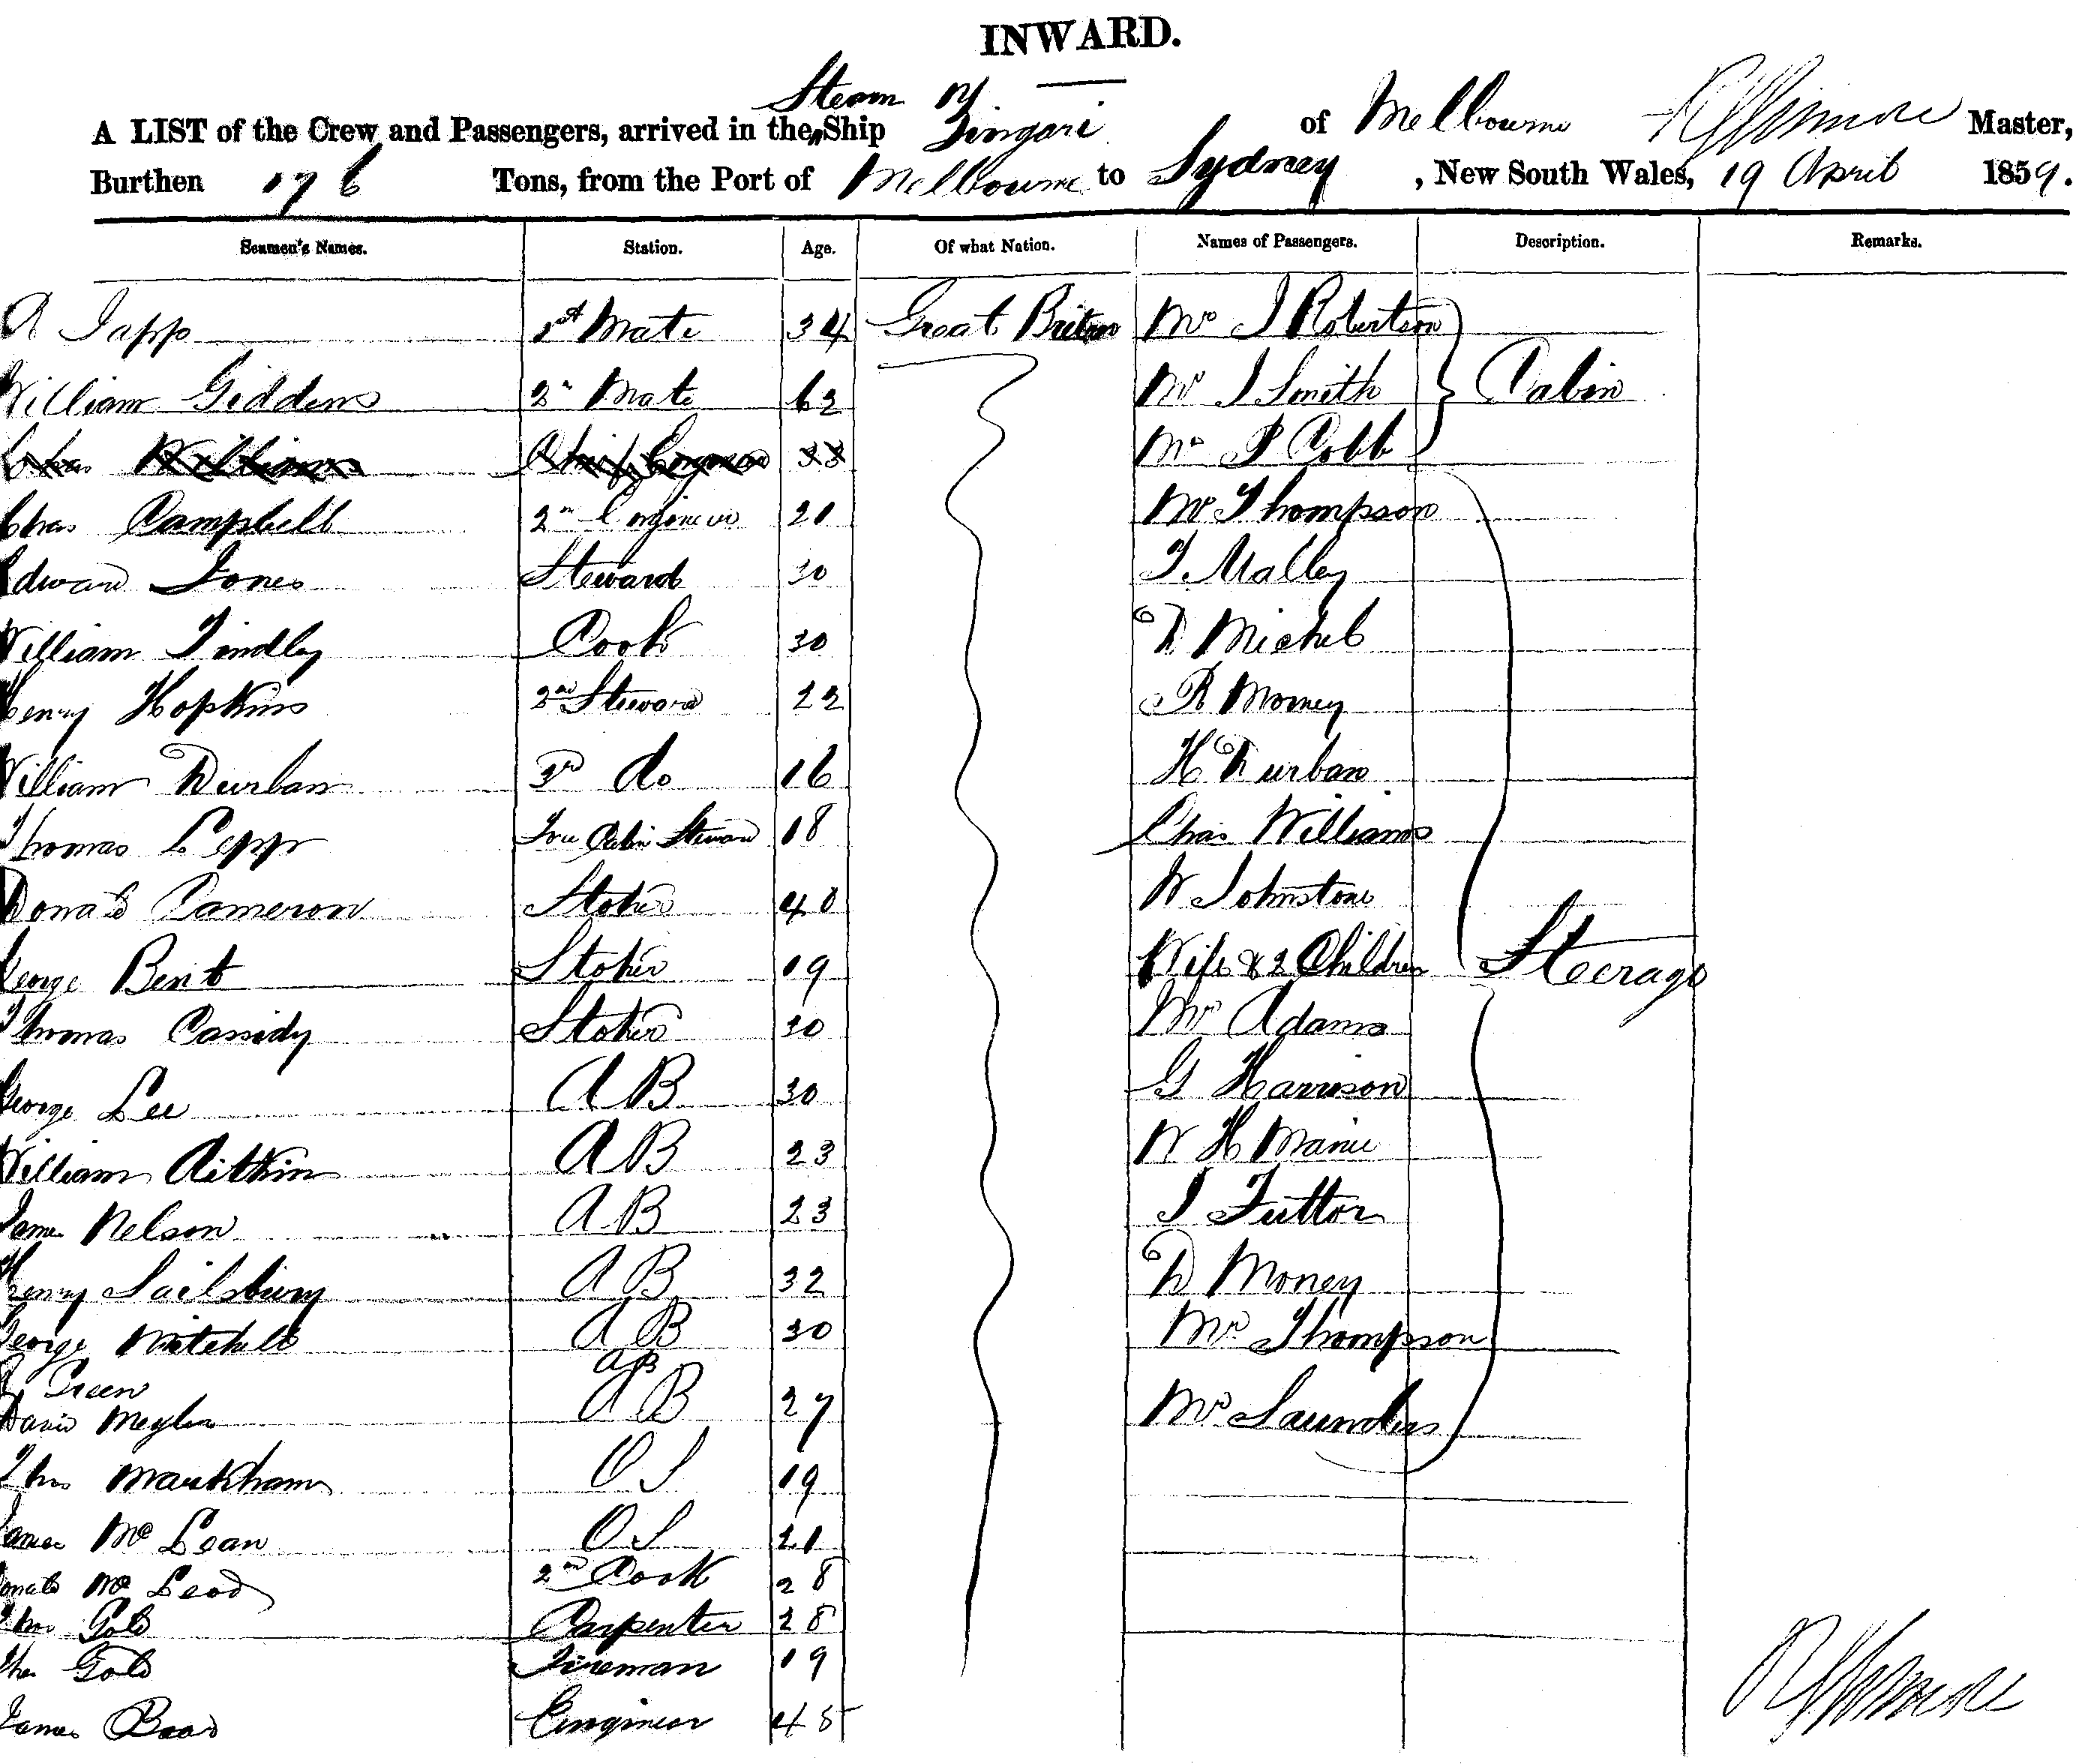 INWARD.
Steam
A LIST of the Crew and Passengers, arrived in the Ship Zingari of Melbourne Master,
Burthen 176 Tons, from the Port of Melbourne to Sydney, New South Wales, 19 April 1859.
Seamen's Names. Station. Age. Of what Nation. Names of Passengers. Description. Remarks.
R Japp 1st Mate 34 Great Britan Mr J Robertson
William Giddens 2n Mate 62 Mr J Smith Cabin
Chas Williams Chief 33 Mr P Cobb
Chas Campbell 2n Engineer 21 Mr Thompson
Edward Jones Steward 30 T. Malley
William Tindley Cook 30 D Michel
Henry Hopkins 2nd Steward 22 R Money
William Durban 3rd do 16 H Durban
Thomas Lepp Fore Cabin Steward 18 Chas Williams
Donald Cameron Stoker 40 W Johnstone
George Bent Stoker 19 Wife & 2 Children Steerage
Thomas Cassidy Stoker 30 Mr Adams
George Lee AB 30 G Harrison
William Aitkin AB 23 W H
James Nelson AB 23 J Futtor
Henry Sailsbury AB 32 D Money
George Mitchell AB 30 Mr Thompson
Green AB
David AB 27 Mr Saunders
Thos Markham OS 19
James McLean OS 21
Donald McLeod 2nd Cook 28
Thos Gold Carpenter 28
Gold Fireman 19
James Engineer 45